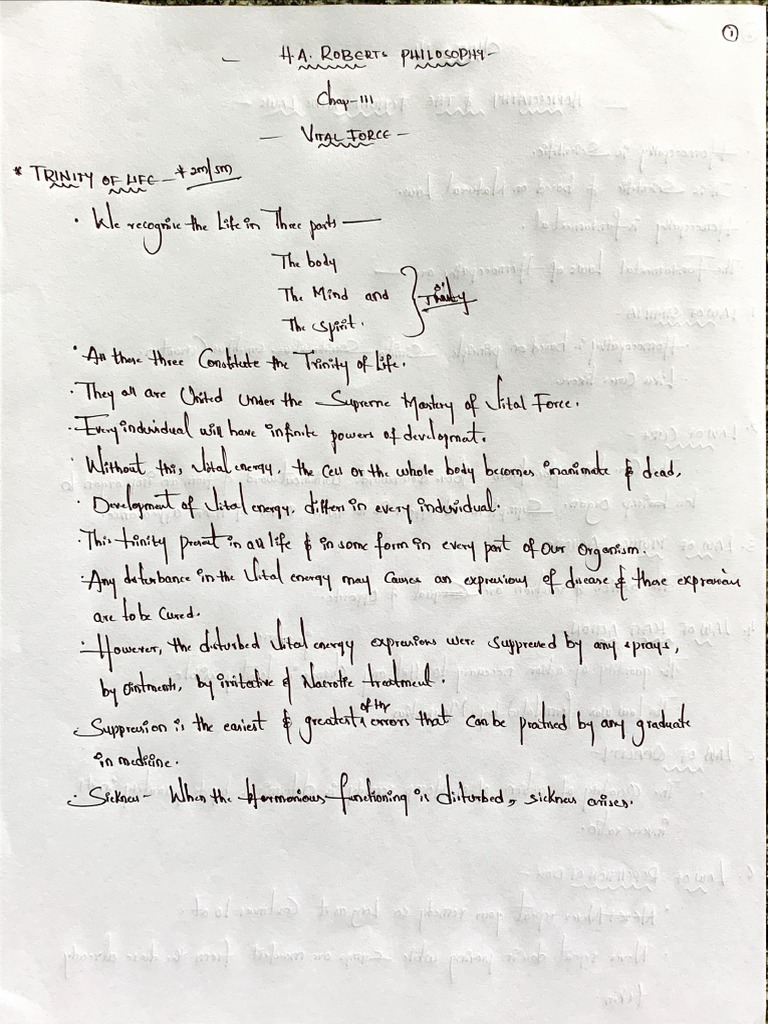 ①
- H.A. ROBERTS PHILOSOPHY -
Chap-III
- VITAL FORCE -
* TRINITY OF LIFE - * 2m/5m
• We recognise the Life in Three parts —
The body
The Mind and } Trinity
The Spirit.
• All these three Constitute the Trinity of Life.
• They all are United under the Supreme Mastery of Vital Force.
• Every individual will have infinite powers of development.
• Without this, Vital energy, the cell or the whole body becomes inanimate & dead.
• Development of Vital energy, differs in every individual.
• This trinity present in all life & in some form in every part of our organism.
• Any disturbance in the Vital energy may causes an expressions of disease & those expression
are to be cured.
• However, the disturbed Vital energy expressions were suppressed by any sprays,
by ointments, by irritative & Narcotic treatment.
• Suppression is the easiest & greatest of the errors that can be by any graduate
in medicine.
• Sickness - When the Harmonious functioning is disturbed, sickness arises.